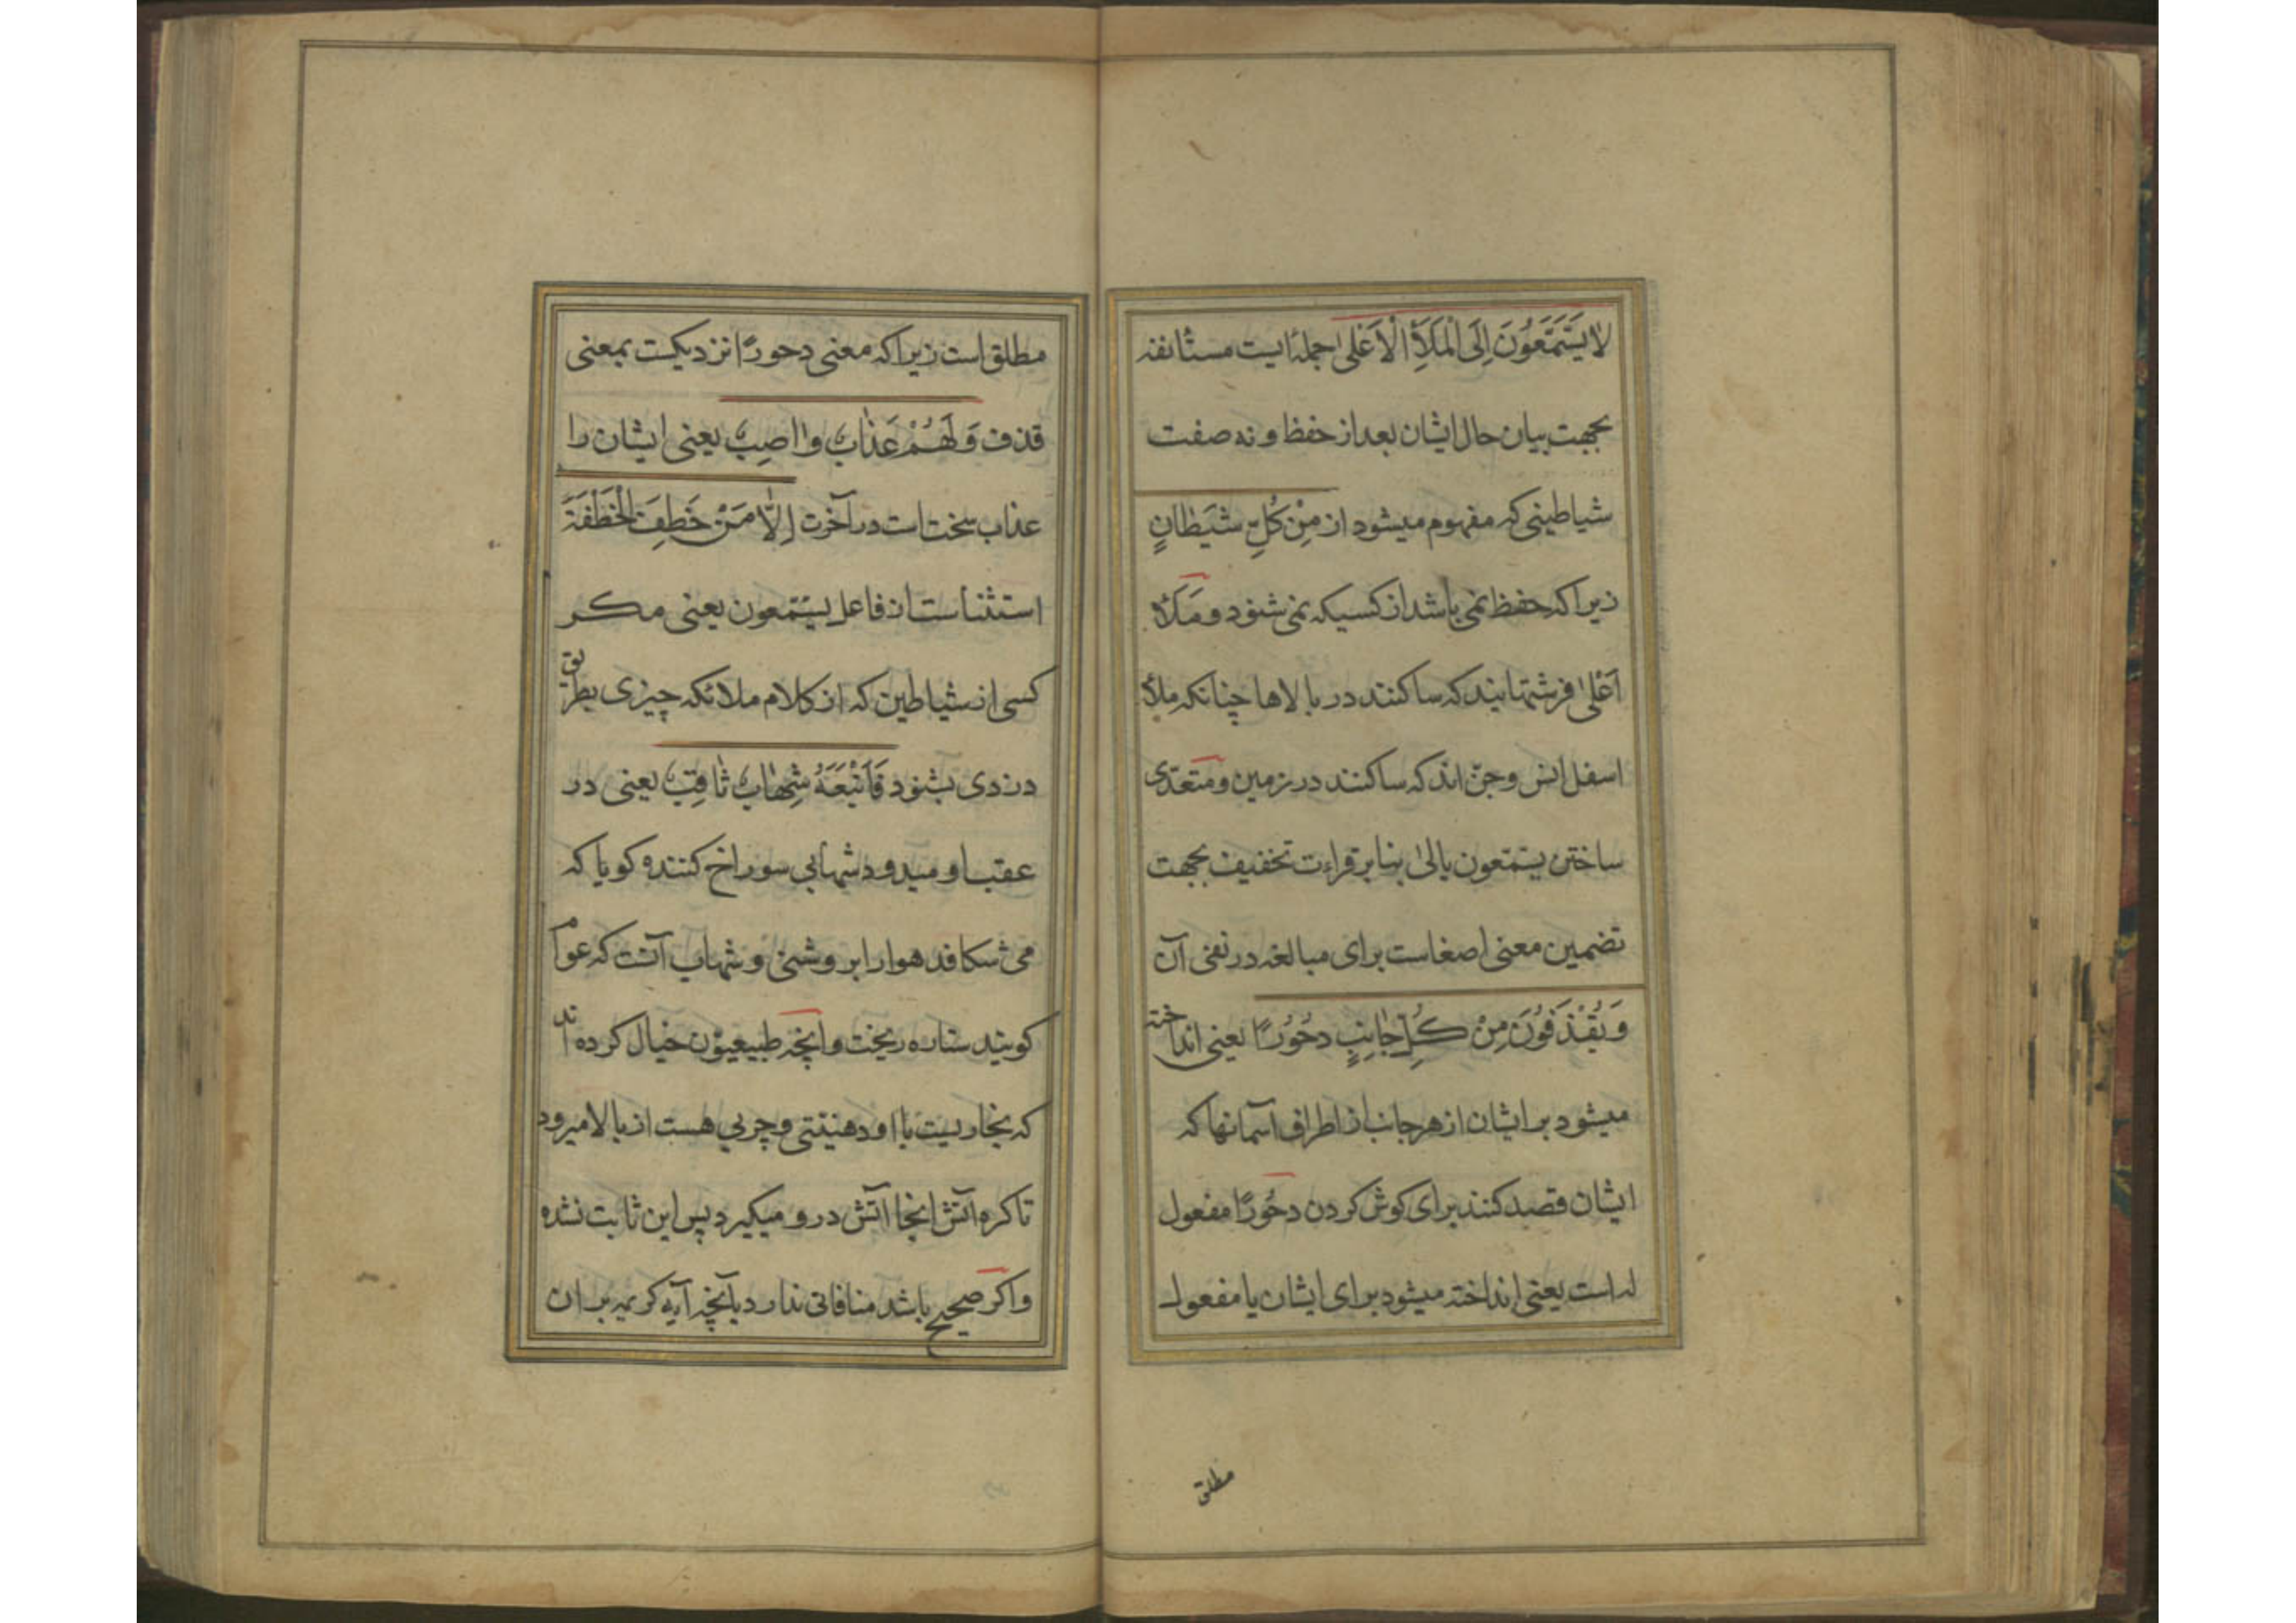 لا يَسَّمَّعُونَ اِلَى الْمَلَأِ الْاَعْلى جملهٔ ایست مستانفه
بجهت بیان حال ایشان بعد از حفظ و نه صفت
شیاطینی که مفهوم میشود از مِنْ كُلِّ شَيْطانٍ
زیرا که حفظ نمی باشد از کسیکه نمی شنود و مَلَأ
اَعْلىٰ فرشتهایند که ساکنند در بالاها چنانکه ملأ
اسفل انس و جنّ اند که ساکنند در زمین و متعدّی
ساختن یستمعون بالیٰ بنابر قراءت تخفیف بجهت
تضمین معنی اصغاست برای مبالغه در نفی آن
وَ يُقْذَفُونَ مِنْ كُلِّ جانِبٍ دُحُورًا یعنی انداخته
میشود بر ایشان از هر جانب از اطراف آسمانها که
ایشان قصد کنند برای کوش کردن دحُورًا مفعول
له است یعنی انداخته میشود برای ایشان یا مفعول
مطلق
مطلق است زیرا که معنی دحورًا نزدیکست بمعنی
قذف وَ لَهُمْ عَذابٌ واصِبٌ یعنی ایشان را
عذاب سخت است در آخرت اِلّا مَنْ خَطِفَ الْخَطْفَةَ
استثناست از فاعل یستمعون یعنی مکر
کسی از شیاطین که از کلام ملائکه چیزی بطریق
دزدی بشنود فَاَتْبَعَهُ شِهابٌ ثاقِبٌ یعنی در
عقب او میدود شهابی سوراخ کننده کویا که
می شکافد هوا را بروشنی و شهاب آنست که عوام
کویند ستاره ریخت و آنچه طبیعیّون خیال کرده اند
که بخاریست با او دهنیّتی و چربی هست از بالا میرود
تا کره آتش انجا آتش در و میکیرد پس این ثابت نشده
و اکر صحیح باشد منافاتی ندارد بآنچه آیه کریمه بر ان